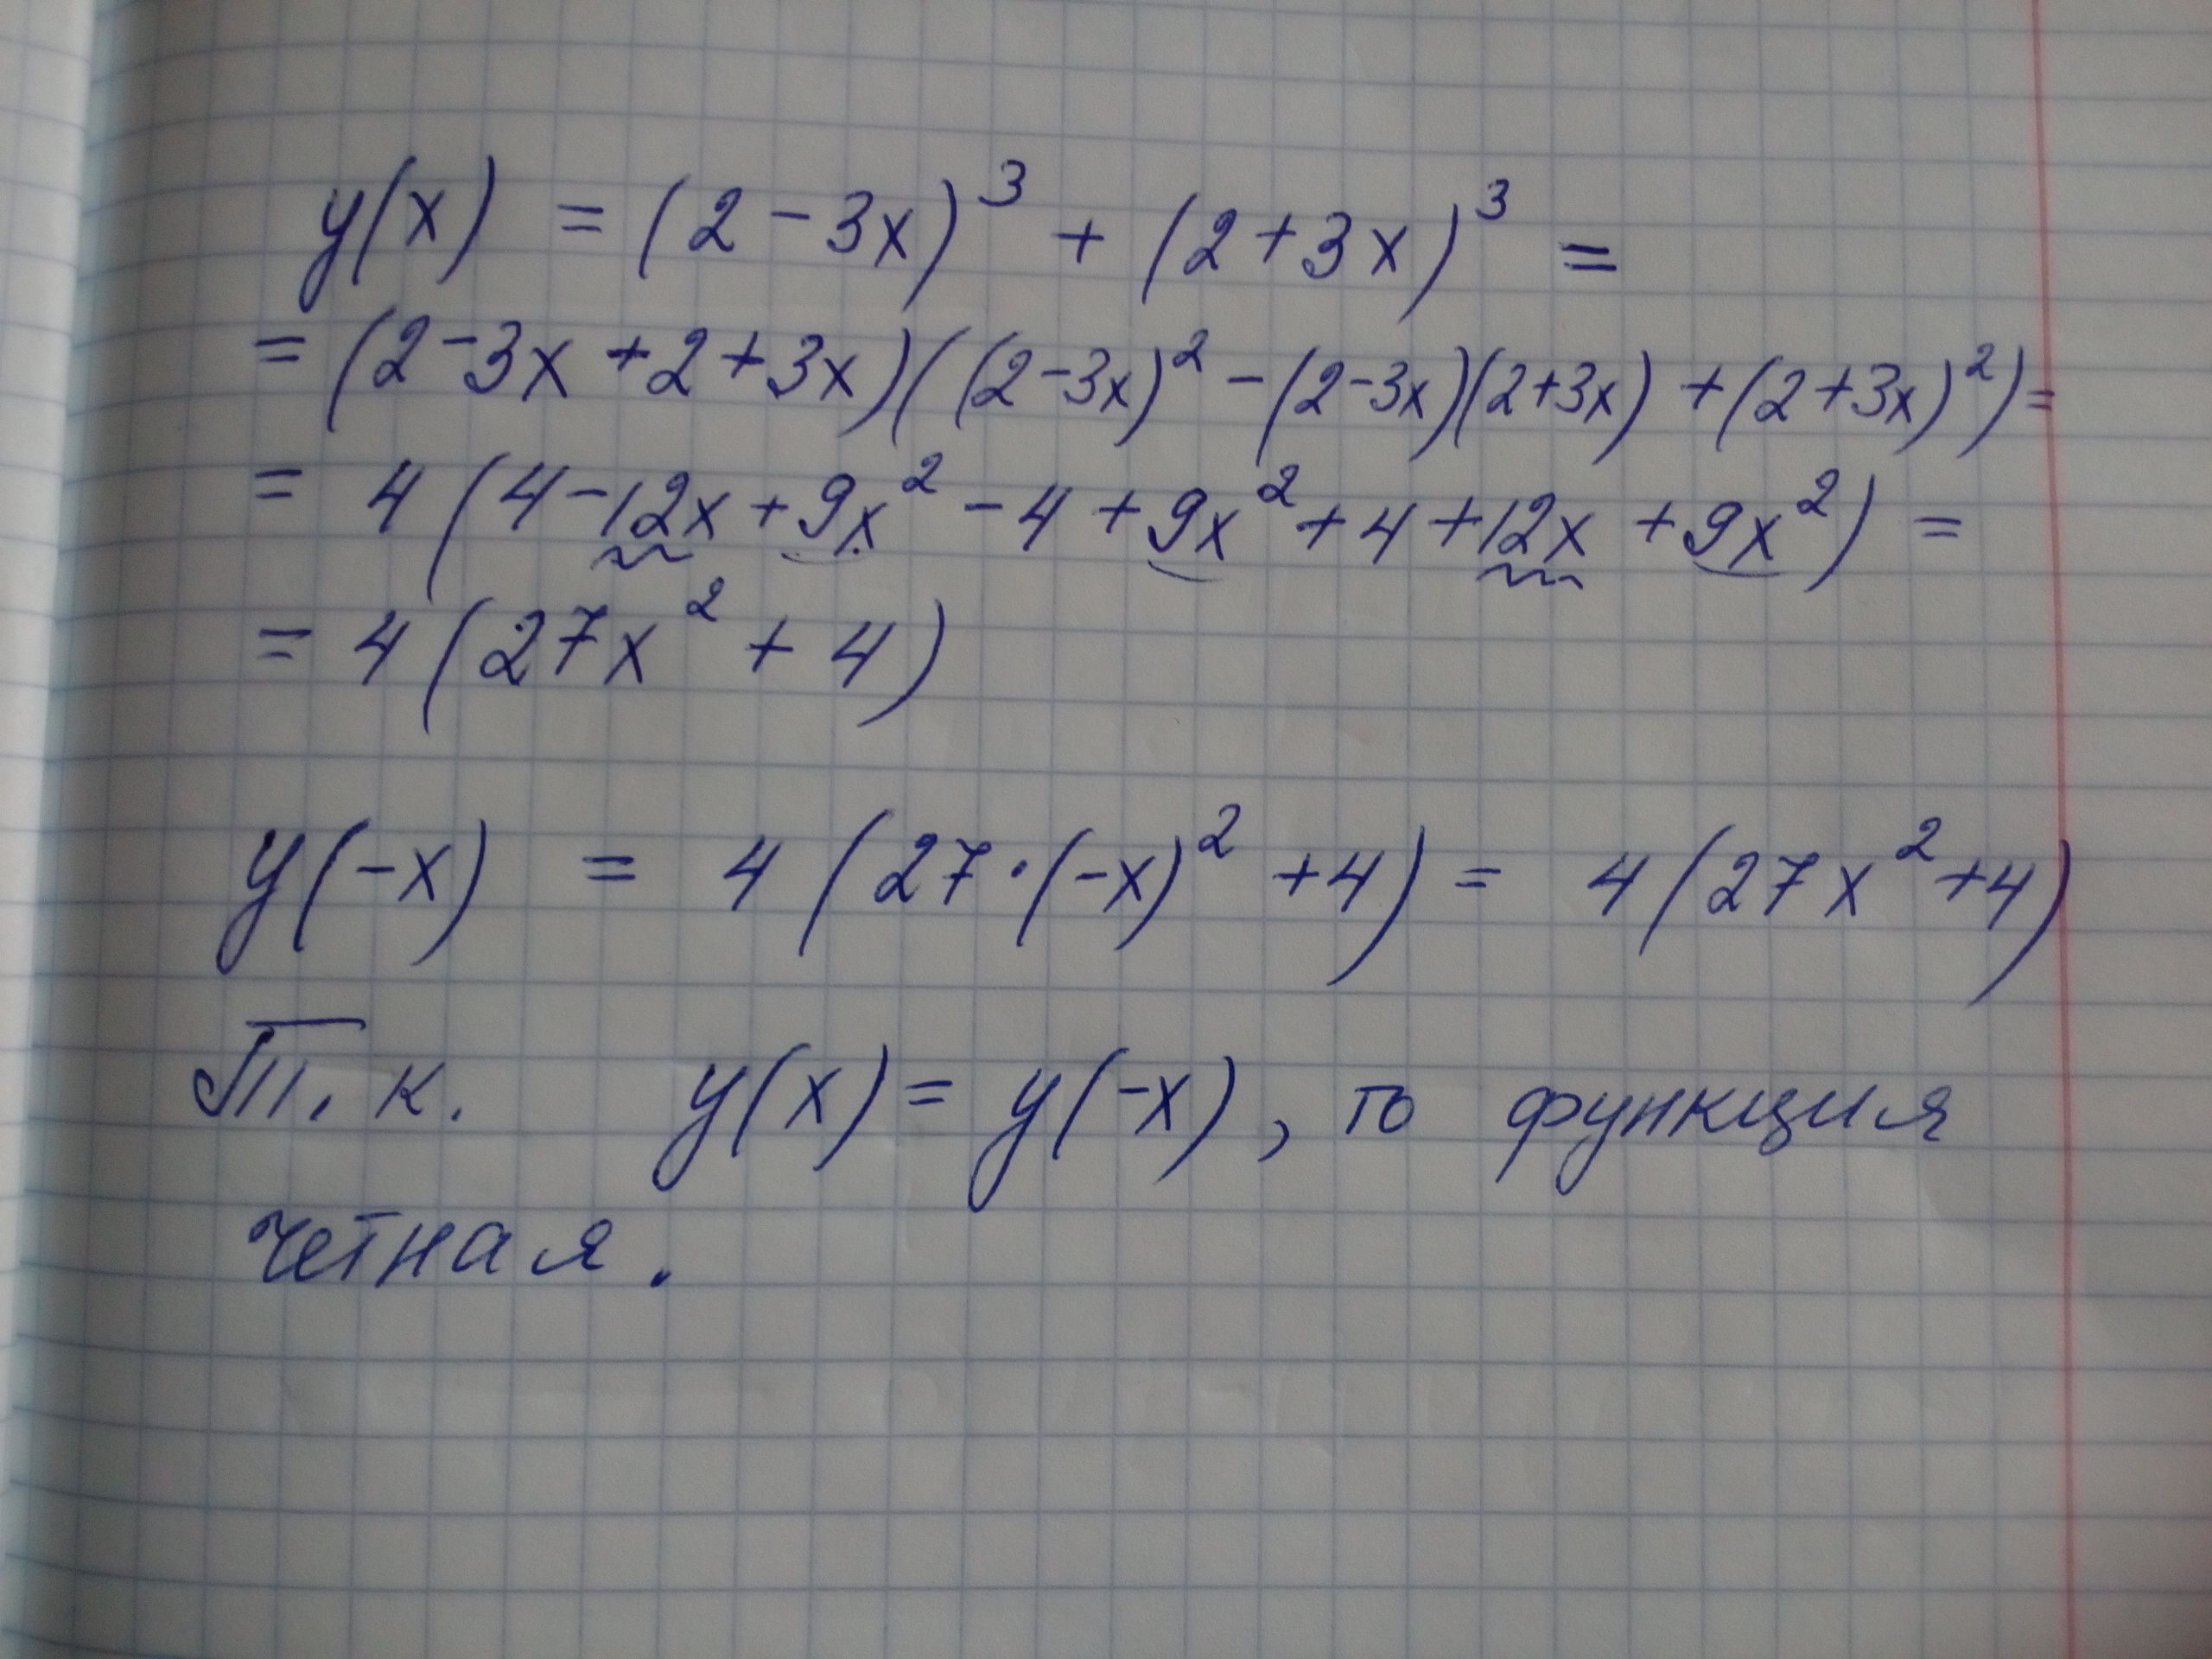 y(x) = (2 - 3x)³ + (2 + 3x)³ =
= (2 - 3x + 2 + 3x)((2 - 3x)² - (2 - 3x)(2 + 3x) + (2 + 3x)²) =
= 4(4 - 12x + 9x² - 4 + 9x² + 4 + 12x + 9x²) =
= 4(27x² + 4)
y(-x) = 4(27·(-x)² + 4) = 4(27x² + 4)
Т.к. y(x) = y(-x), то функция
четная.